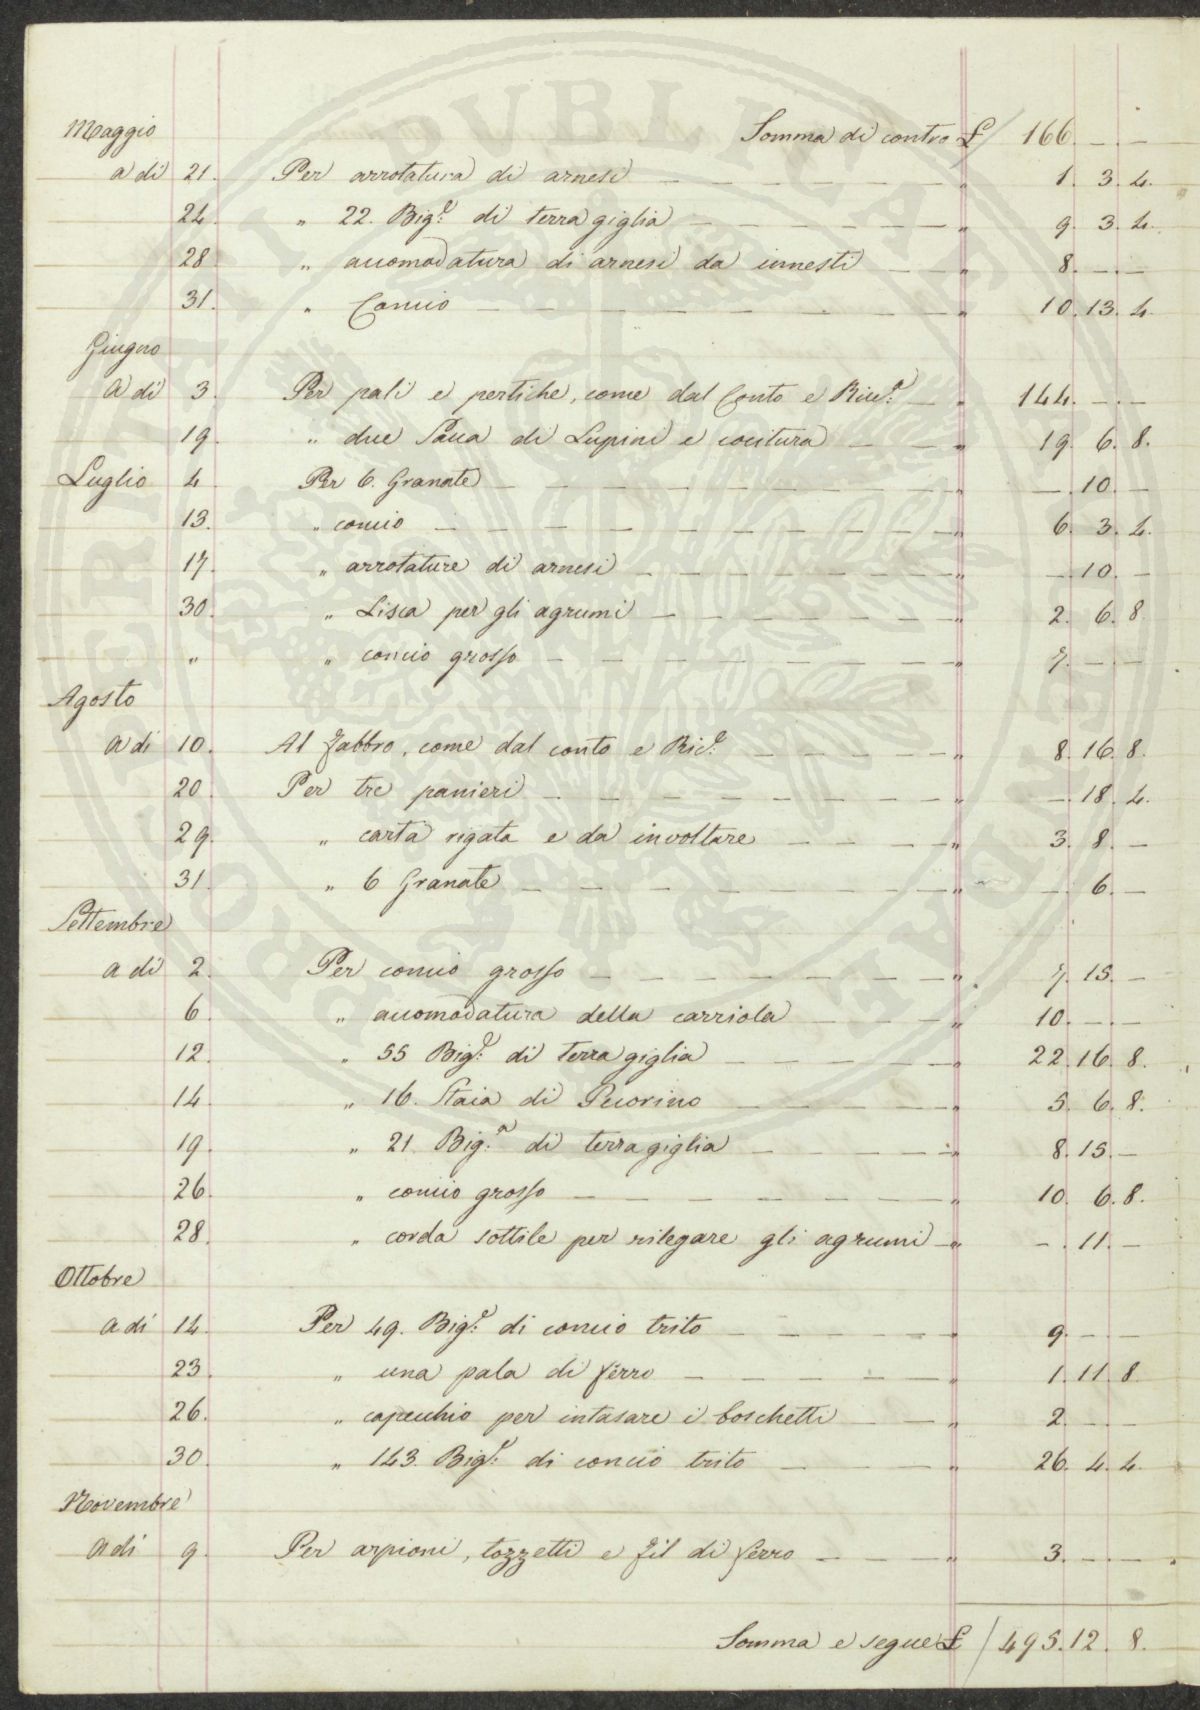 Maggio Somma di contro £ 166. — . —
a di 21. Per arrotatura di arnesi — — — — — — — " 1. 3. 4.
24. " 22. Big.e di terra giglia — — — — — — " 9. 3. 4.
28. " accomodatura di arnesi da innesti — — " 8. — . —
31. " Concio — — — — — — — — — " 10. 13. 4.
Giugno
a di 3. Per pali e pertiche, come dal Conto e Ric.a — " 144. — . —
19. " due Sacca di Lupini e cocitura — — — " 19. 6. 8.
Luglio 4. Per 6. Granate — — — — — — — — — " — . 10. —
13. " concio — — — — — — — — — — " 6. 3. 4.
17. " arrotature di arnesi — — — — — — — " — . 10. —
30. " Lisca per gli agrumi — — — — — — — " 2. 6. 8.
" " concio grosso — — — — — — — — — " 7. — . —
Agosto
a di 10. Al fabbro, come dal conto e Ric.e — — — — — " 8. 16. 8.
20. Per tre panieri — — — — — — — — — " — . 18. 4.
29. " carta rigata e da involtare — — — — " 3. 8. —
31. " 6 Granate — — — — — — — — — " — . 6. —
Settembre
a di 2. Per concio grosso — — — — — — — — " 7. 15. —
6. " accomodatura della carriola — — — — " 10. — . —
12. " 55 Big.e di terra giglia — — — — — — " 22. 16. 8.
14. " 16. Staia di Pecorino — — — — — — " 5. 6. 8.
19. " 21. Big.e di terra giglia — — — — — " 8. 15. —
26. " concio grosso — — — — — — — — " 10. 6. 8.
28. " corda sottile per rilegare gli agrumi — " — . 11. —
Ottobre
a di 14. Per 49. Big.e di concio trito — — — — — " 9. — —
23. " una pala di ferro — — — — — — " 1. 11. 8.
26. " capecchio per intasare i boschetti — — " 2. — —
30. " 143. Big.e di concio trito — — — — " 26. 4. 4.
Novembre
a di 9. Per arpioni, tozzetti e fil di ferro — — — " 3. — . —
Somma e segue £ 495. 12. 8.